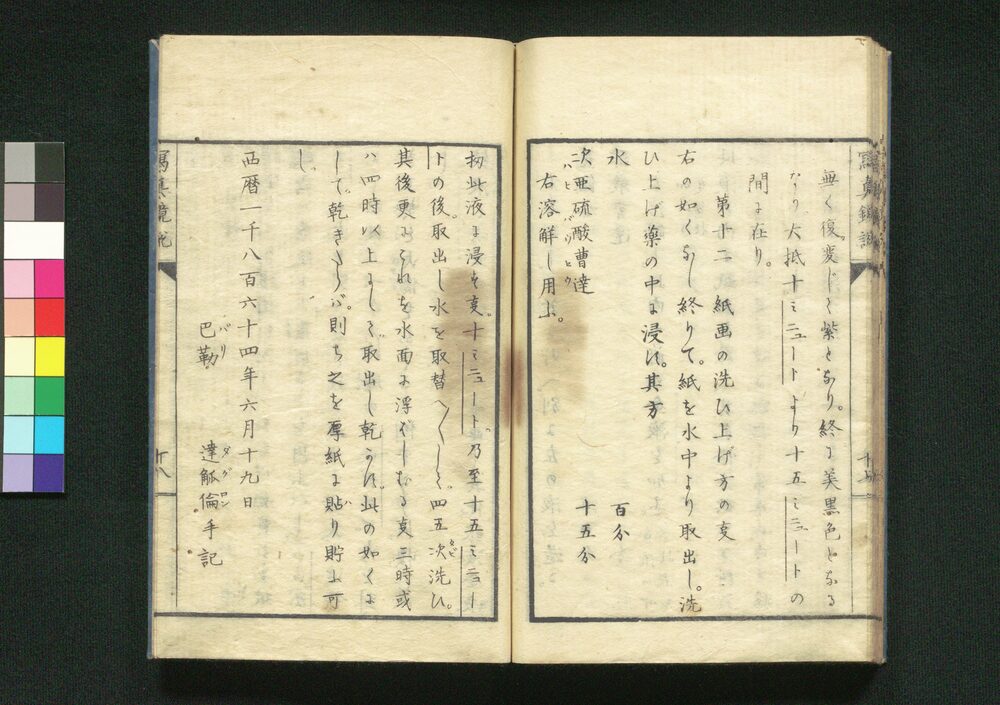 無く復変じて紫となり。終に美黒色となる
なり大抵十ミニュートより十五ミニュートの
間に在り。
第十二 紙画の洗ひ上げ方の叓
右の如くなし終りて。紙を水中より取出し。洗
ひ上げ薬の中に浸す。其方
水 百分
次亜硫酸曹達 十五分
右溶解し用ふ。
扨此液に浸す叓。十ミニュート。乃至十五ミニュー
トの後。取出し水を取替へ〱して。四五次洗ひ。
其後更にこれを水面に浮ばしむる叓三時或
ハ四時以上にして取出し乾かす。此の如くに
して乾きたらバ。則ち之を厚紙に貼り貯ふ可
し。
西暦一千八百六十四年六月十九日
巴勒 達觚倫手記
バリ ダグロン
寫真鏡
十八